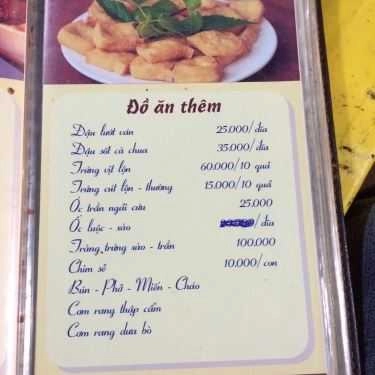 Đồ ăn thêm
Đậu lướt ván 25.000/đĩa
Đậu sốt cà chua 35.000/đĩa
Trứng vịt lộn 60.000/10 quả
Trứng cút lộn - thường 15.000/10 quả
Ốc trần ngải cứu 25.000
Ốc luộc - xào /đĩa
Tràng trứng xào - trần 100.000
Chim sẻ 10.000/con
Bún - Phở - Miến - Cháo
Cơm rang thập cẩm
Cơm rang dưa bò